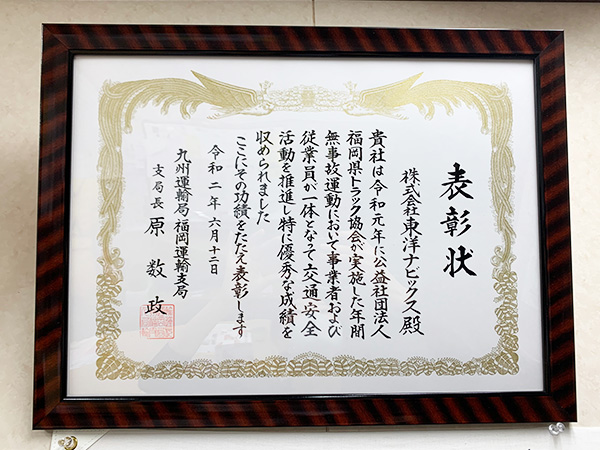 表彰状
株式会社東洋ナビックス殿
貴社は令和元年に公益社団法人
福岡県トラック協会が実施した年間
無事故運動において事業者および
従業員が一体となって交通安全
活動を推進し特に優秀な成績を
収められました
ここにその功績をたたえ表彰します
令和二年六月十二日
九州運輸局福岡運輸支局
支局長 原 数政